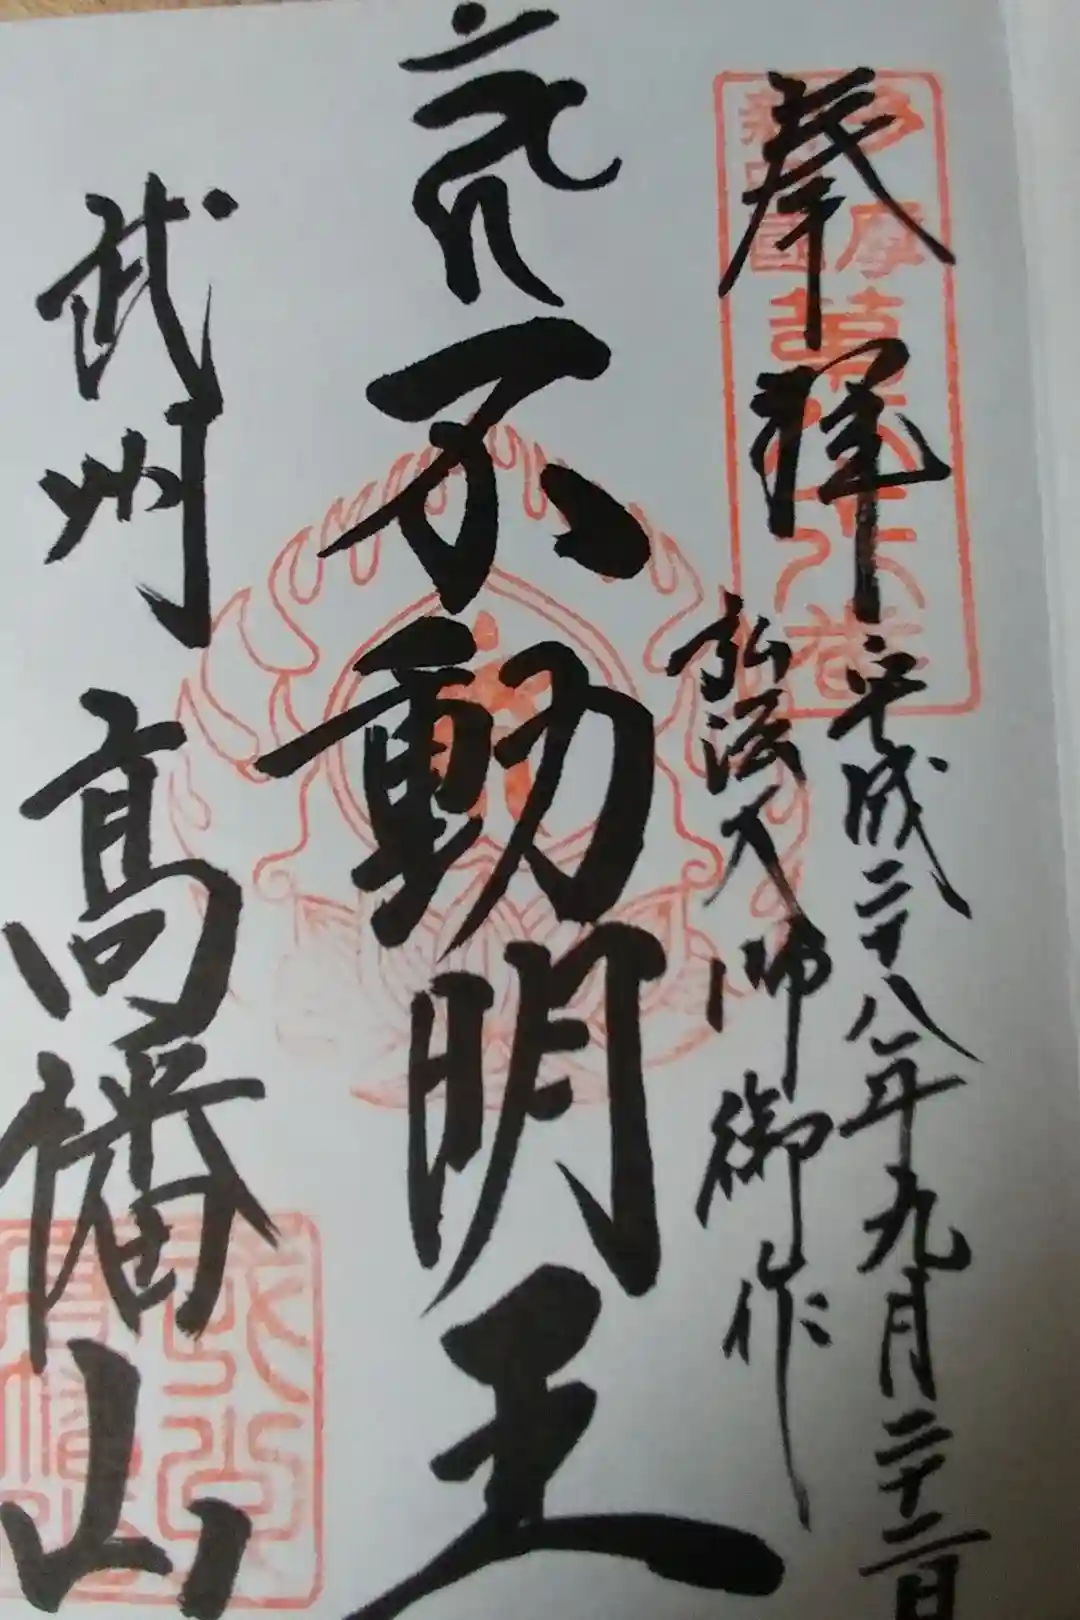 奉拝 平成二十八年九月二十二日
弘法大師御作
荒不動明王
武州 高幡山
多摩
新四國